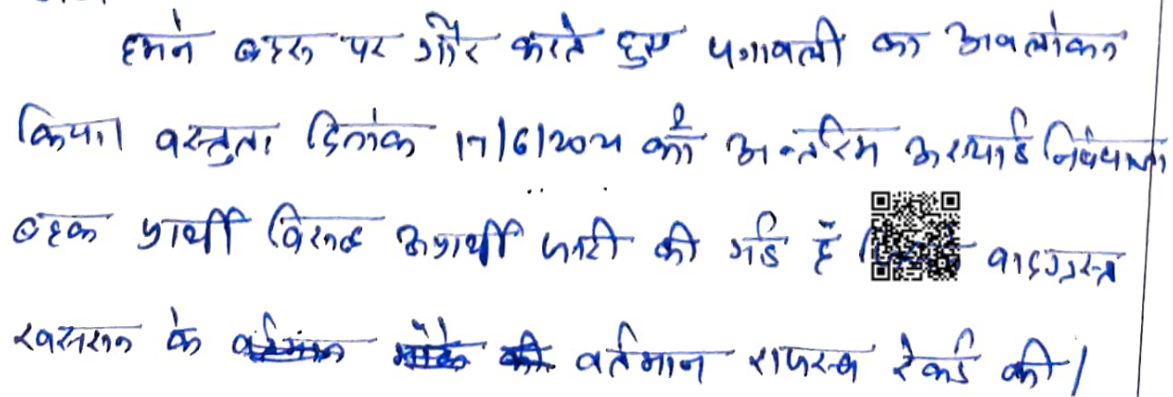 हमने बहस पर गौर करते हुए पत्रावली का अवलोकन
किया। वस्तुतः दिनांक 17/6/2024 को अन्तरिम अस्थाई निषेधाज्ञा
बहक प्रार्थी विरूद्ध अप्रार्थी जारी की गई है वादग्रस्त
के वर्तमान राजस्व रेकर्ड की।